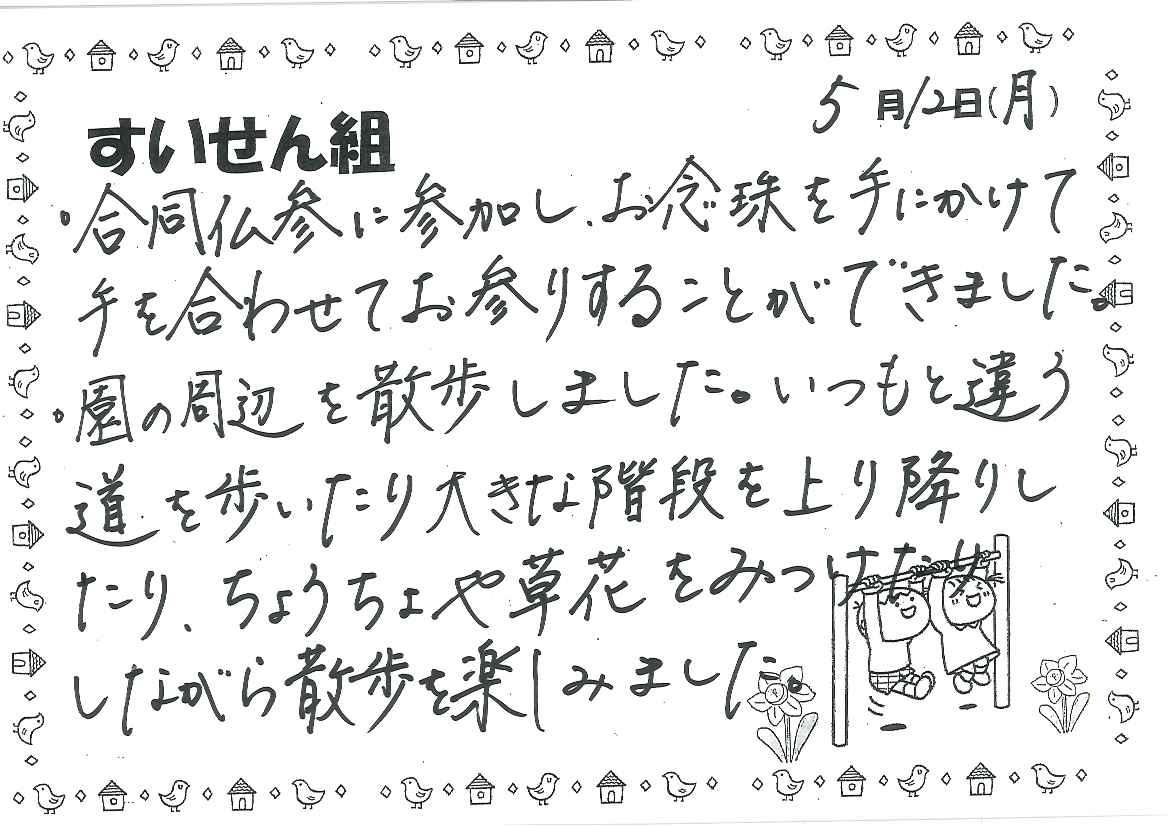 5月12日(月)
すいせん組
・合同仏参に参加し、お念珠を手にかけて
手を合わせてお参りすることができました。
・園の周辺を散歩しました。いつもと違う
道を歩いたり大きな階段を上り降りし
たり、ちょうちょや草花をみつけたり
しながら散歩を楽しみました。